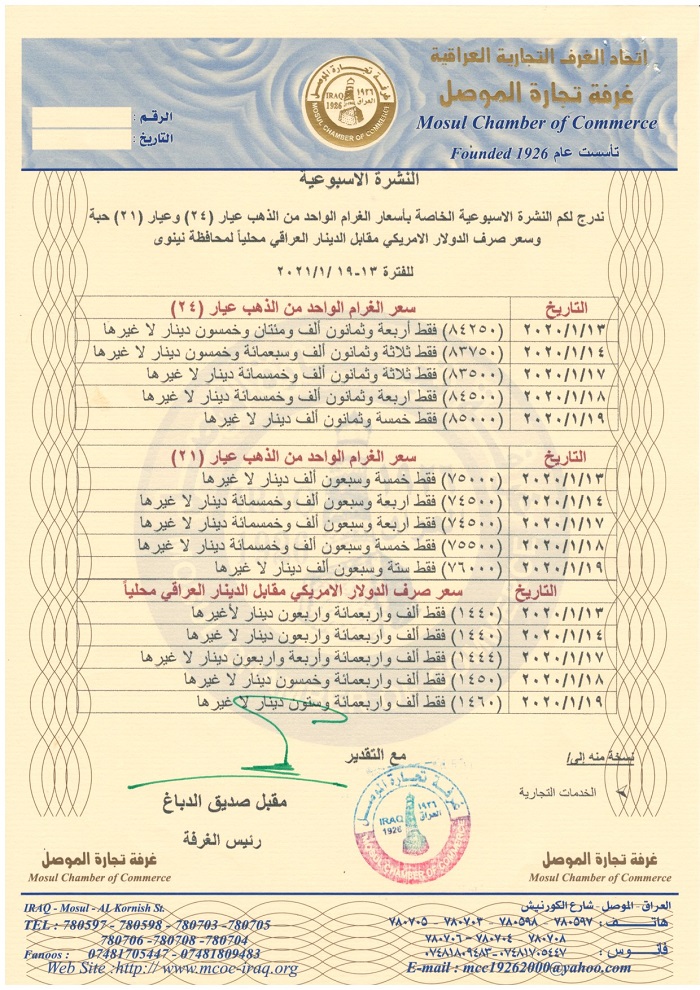 اتحاد الغرف التجارية العراقية
غرفة تجارة الموصل
Mosul Chamber of Commerce
تأسست عام Founded 1926
غرفة تجارة الموصل
IRAQ ١٩٢٦
1926 العراق
MOSUL CHAMBER OF COMMERCE
الرقم :
التاريخ :
النشرة الاسبوعية
ندرج لكم النشرة الاسبوعية الخاصة بأسعار الغرام الواحد من الذهب عيار (٢٤) وعيار (٢١) حبة
وسعر صرف الدولار الامريكي مقابل الدينار العراقي محلياً لمحافظة نينوى
للفترة ١٣-١٩ /٢٠٢١/١
التاريخ سعر الغرام الواحد من الذهب عيار (٢٤)
٢٠٢٠/١/١٣ (٨٤٢٥٠) فقط أربعة وثمانون ألف ومئتان وخمسون دينار لا غيرها
٢٠٢٠/١/١٤ (٨٣٧٥٠) فقط ثلاثة وثمانون ألف وسبعمائة وخمسون دينار لا غيرها
٢٠٢٠/١/١٧ (٨٣٥٠٠) فقط ثلاثة وثمانون ألف وخمسمائة دينار لا غيرها
٢٠٢٠/١/١٨ (٨٤٥٠٠) فقط اربعة وثمانون ألف وخمسمائة دينار لا غيرها
٢٠٢٠/١/١٩ (٨٥٠٠٠) فقط خمسة وثمانون ألف دينار لا غيرها
التاريخ سعر الغرام الواحد من الذهب عيار (٢١)
٢٠٢٠/١/١٣ (٧٥٠٠٠) فقط خمسة وسبعون ألف دينار لا غيرها
٢٠٢٠/١/١٤ (٧٤٥٠٠) فقط اربعة وسبعون ألف وخمسمائة دينار لا غيرها
٢٠٢٠/١/١٧ (٧٤٥٠٠) فقط اربعة وسبعون ألف وخمسمائة دينار لا غيرها
٢٠٢٠/١/١٨ (٧٥٥٠٠) فقط خمسة وسبعون ألف وخمسمائة دينار لا غيرها
٢٠٢٠/١/١٩ (٧٦٠٠٠) فقط ستة وسبعون ألف دينار لا غيرها
التاريخ سعر صرف الدولار الامريكي مقابل الدينار العراقي محلياً
٢٠٢٠/١/١٣ (١٤٤٠) فقط ألف واربعمائة واربعون دينار لأغيرها
٢٠٢٠/١/١٤ (١٤٤٠) فقط ألف واربعمائة واربعون دينار لا غيرها
٢٠٢٠/١/١٧ (١٤٤٤) فقط ألف واربعمائة وأربعة واربعون دينار لا غيرها
٢٠٢٠/١/١٨ (١٤٥٠) فقط ألف واربعمائة وخمسون دينار لا غيرها
٢٠٢٠/١/١٩ (١٤٦٠) فقط ألف واربعمائة وستون دينار لا غيرها
مع التقدير
نسخة منه إلى/
الخدمات التجارية
مقبل صديق الدباغ
رئيس الغرفة
غرفة تجارة الموصل
IRAQ ١٩٢٦
1926 العراق
MOSUL CHAMBER OF COMMERCE
غرفة تجارة الموصل
Mosul Chamber of Commerce
غرفة تجارة الموصل
Mosul Chamber of Commerce
العراق - الموصل - شارع الكورنيش
هاتف : ٧٨٠٥٩٧ - ٧٨٠٥٩٨ - ٧٨٠٧٠٣ - ٧٨٠٧٠٥
٧٨٠٧٠٨ - ٧٨٠٧٠٤ - ٧٨٠٧٠٦
فانوس : ٠٧٤٨١٧٠٥٤٤٧-٠٧٤٨١٨٠٩٤٨٣
E-mail : mcc19262000@yahoo.com
IRAQ - Mosul - AL Kornish St.
TEL : 780597 - 780598 - 780703 -780705
780706 -780708 -780704
Fanoos : 07481705447 - 07481809483
Web Site :http:// www.mcoc-iraq.org